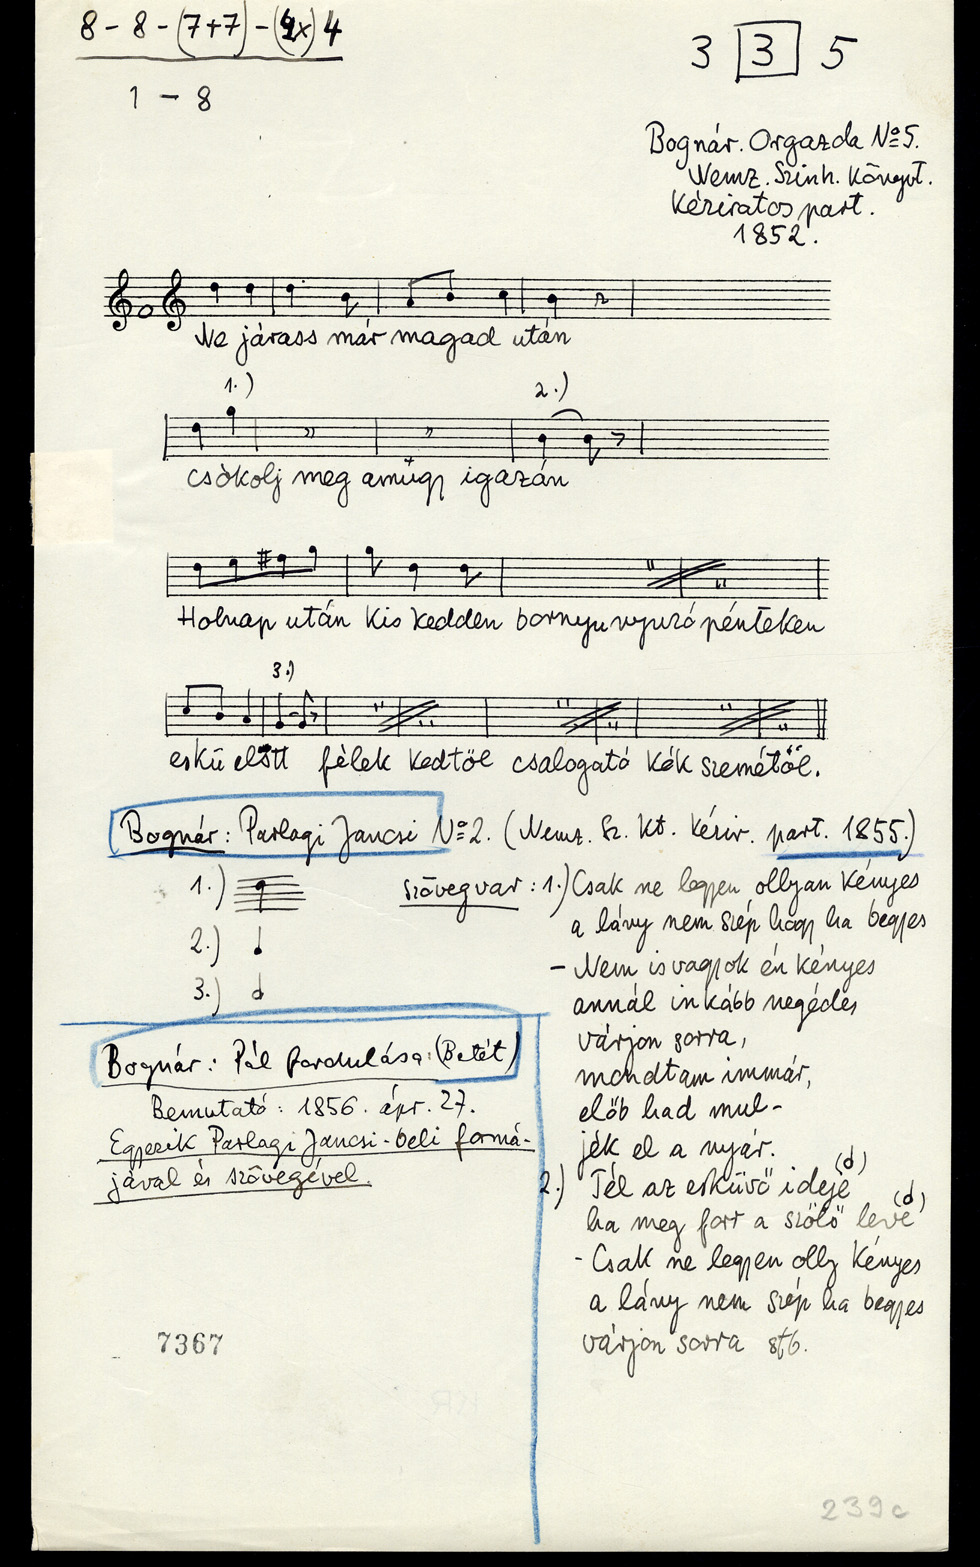 8 - 8 - (7+7) - (4x) 4
1 - 8
3 3 5
Bognár. Orgazda No5.
Nemz. Szinh. Könyvt.
Kéziratos part.
1852.
Ne járass már magad után
1.) 2.)
csókolj meg amúgy igazán
Holnap után kis kedden bornyu nyuzó pénteken
3.)
eskü előtt félek kedtöl csalogató kék szemétől.
Bognár: Parlagi Jancsi No2. (Nemz. Sz. Kt. kézir. part. 1855.)
1.)
2.)
3.)
Szövegvar: 1.) Csak ne legyen ollyan kényes
a lány nem szép hogy ha begyes
- Nem is vagyok én kényes
annál inkább negédes
várjon sorra,
mondtam immár,
előb had mul-
jék el a nyár.
2.) Tél az esküvő idejé(d)
ha meg forr a szőlő levé(d)
- Csak ne legyen olly kényes
a lány nem szép ha begyes
várjon sorra stb.
Bognár: Pál fordulása: (Betét)
Bemutató: 1856. ápr. 27.
Egyezik Parlagi Jancsi-beli formá-
jával és szövegével.
7367
239c